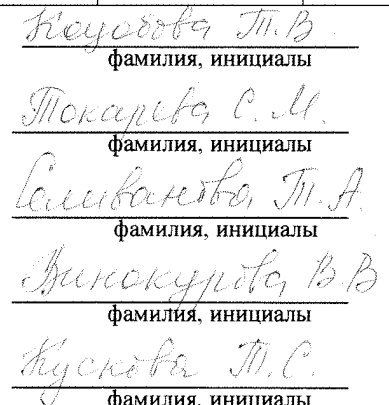 Коцобова Т.В
фамилия, инициалы
Токарева С.М.
фамилия, инициалы
Селиванова, Т.А.
фамилия, инициалы
Винокурова В.В
фамилия, инициалы
Кускова Т.С.
фамилия, инициалы